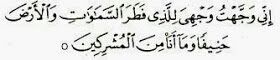 إِنِّى وَجَّهْتُ وَجْهِىَ لِلَّذِى فَطَرَ ٱلسَّمَٰوَٰتِ وَٱلْأَرْضَ
حَنِيفًا وَمَآ أَنَا۠ مِنَ ٱلْمُشْرِكِينَ ۝